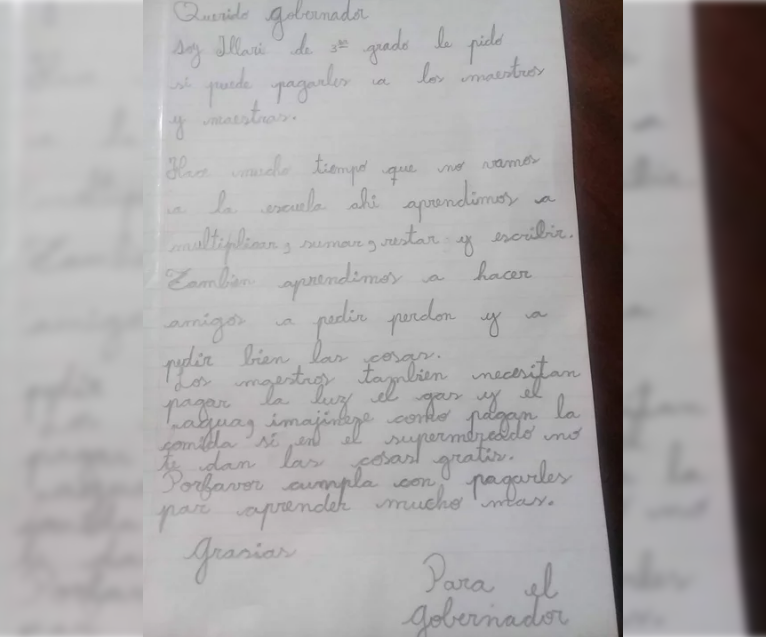 Querido gobernador
soy Illari de 3er grado le pido
si puede pagarles a los maestros
y maestras.
Hace mucho tiempo que no vamos
a la escuela ahi aprendimos a
multiplicar, sumar, restar y escribir.
Tambien aprendimos a hacer
amigos a pedir perdon y a
pedir bien las cosas.
Los maestros tambien necesitan
pagar la luz el gas y el
agua, imajineze como pagan la
comida si en el supermercado no
te dan las cosas gratis.
Porfavor cumpla con pagarles
par aprender mucho mas.
Grasias
Para el
gobernador